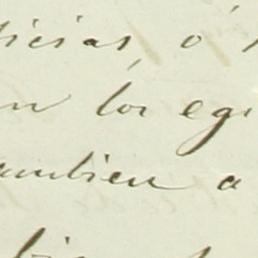 icias, ó
n los eg
ambien a